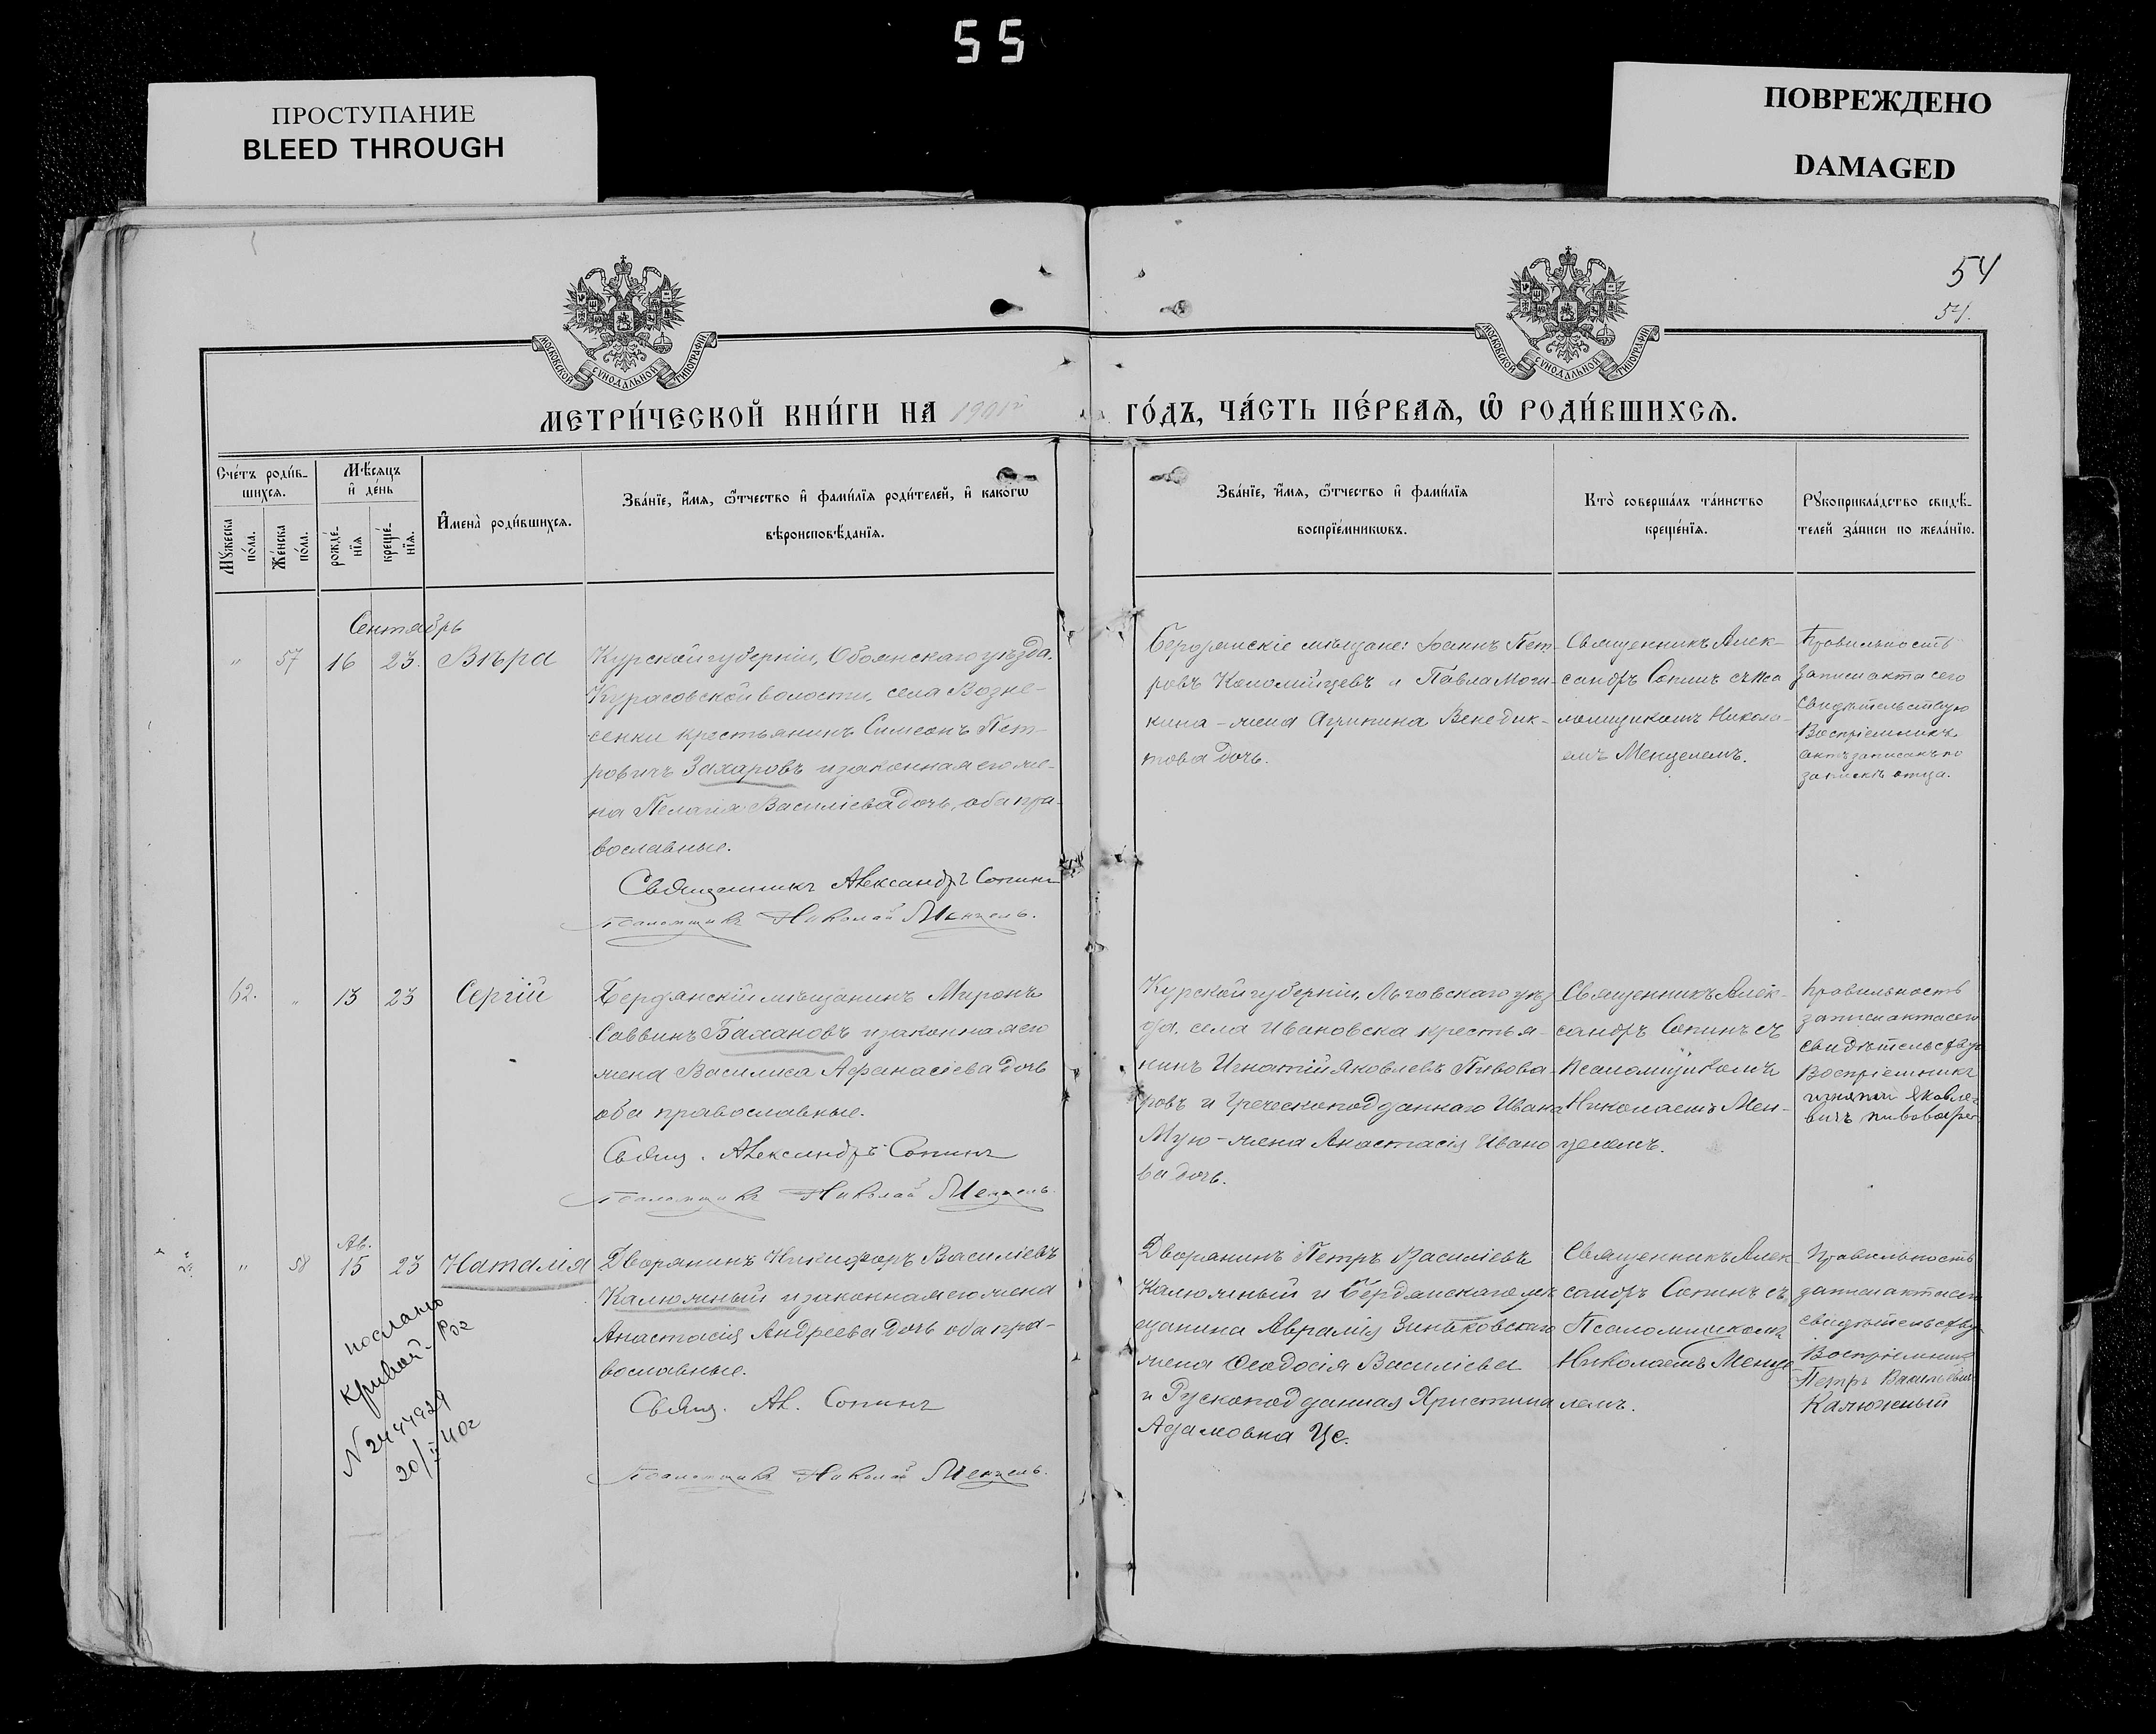 55
ПРОСТУПАНИЕ
BLEED THROUGH
ПОВРЕЖДЕНО
DAMAGED
54
54.
МОСКОВСКОЙ СѴНОДАЛЬНОЙ ТИПОГРАФІИ
МОСКОВСКОЙ СѴНОДАЛЬНОЙ ТИПОГРАФІИ
МЕТРИ́ЧЕСКОЙ КНИ́ГИ НА 1901й
ГО́ДЪ, ЧА́СТЬ ПЕ́РВАѦ, Ѽ РОДИ́ВШИХСѦ.
Счéтъ роди́в-
шихсѧ.
Мѣ́сѧцъ
и҆ де́нь
Мꙋ́жеска по́ла.
Же́нска по́ла.
рожде́-
нїѧ
креще́-
нїѧ.
И҆мена̀ роди́вшихсѧ.
Зва́нїе, и҆́мѧ, ѻ҆́тчество и҆ фами́лїѧ роди́телей, и҆ како́гѡ
вѣроисповѣ́данїѧ.
Зва́нїе, и҆́мѧ, ѻ҆́тчество и҆ фами́лїѧ
воспрїе́мникѡвъ.
Кто̀ соверша́лъ та́инство
креще́нїѧ.
Рꙋкоприкла́дство свидѣ́-
телей за́писи по жела́нїю.
Сентябрь
" 57 16 23. Вѣра
Курской губерніи, Обоянскаго уѣзда,
Курасовской волости, села Возне-
сенки крестьянинъ Симеонъ Пет-
ровичъ Захаровъ и законная его же-
на Пелагія Василіева дочь, оба пра-
вославные.
Священникъ Александръ Сопинъ
Псаломщикъ Николай Менцель.
Бердянскіе мѣщане: Іоаннъ Пет-
ровъ Коломійцевъ и Павла Моги-
кина - жена Агрипина Венедик-
това дочь.
Священникъ Алек-
сандръ Сопинъ съ пса
ломщикомъ Никола-
емъ Менцелемъ.
Правильность
записи акта сего
свидѣтельствую
Воспріемникъ
актъ записанъ по
запискѣ отца.
62. " 13 23 Сергій
Бердянскій мѣщанинъ Миронъ
Саввинъ Бахановъ и законная его
жена Василиса Афанасіева дочь
оба православные.
Свящ. Александръ Сопинъ
Псаломщикъ Николай Менцель.
Курской губерніи, Льговскаго уѣз
да, села Ивановска крестья-
нинъ Игнатій Яковлевъ Пивова-
ровъ и Греческоподданнаго Ивана
Мую - жена Анастасія Ивано
ва дочь.
Священникъ Алек-
сандръ Сопинъ съ
Псаломщикомъ
Николаемъ Мен-
целемъ.
Правильность
записи акта сего
свидѣтельствую
Воспріемникъ
игнатій Яковле-
вичъ пивоваров
" 58 Ав. 15 23 Наталія
Дворянинъ Никифоръ Василіевъ
Калюжный и законная его жена
Анастасія Андреева дочь оба пра-
вославные.
Свящ. Ал. Сопинъ
Псаломщикъ Николай Менцель.
послано
Кривой-Рог
N 2444929
20/II 40г
Дворянинъ Петръ Василіевъ
Калюжный и Бердянскаго мѣ
щанина Аврамія Зинковскаго
жена Ѳеодосія Василіева
и Рускоподданная Христина
Адамовна Це.
Священникъ Алек
сандръ Сопинъ съ
Псаломщикомъ
Николаемъ Менце
лемъ.
Правильность
записи акта сего
свидѣтельству-
Воспріемникъ
Петръ Васильевичъ
Калюжный